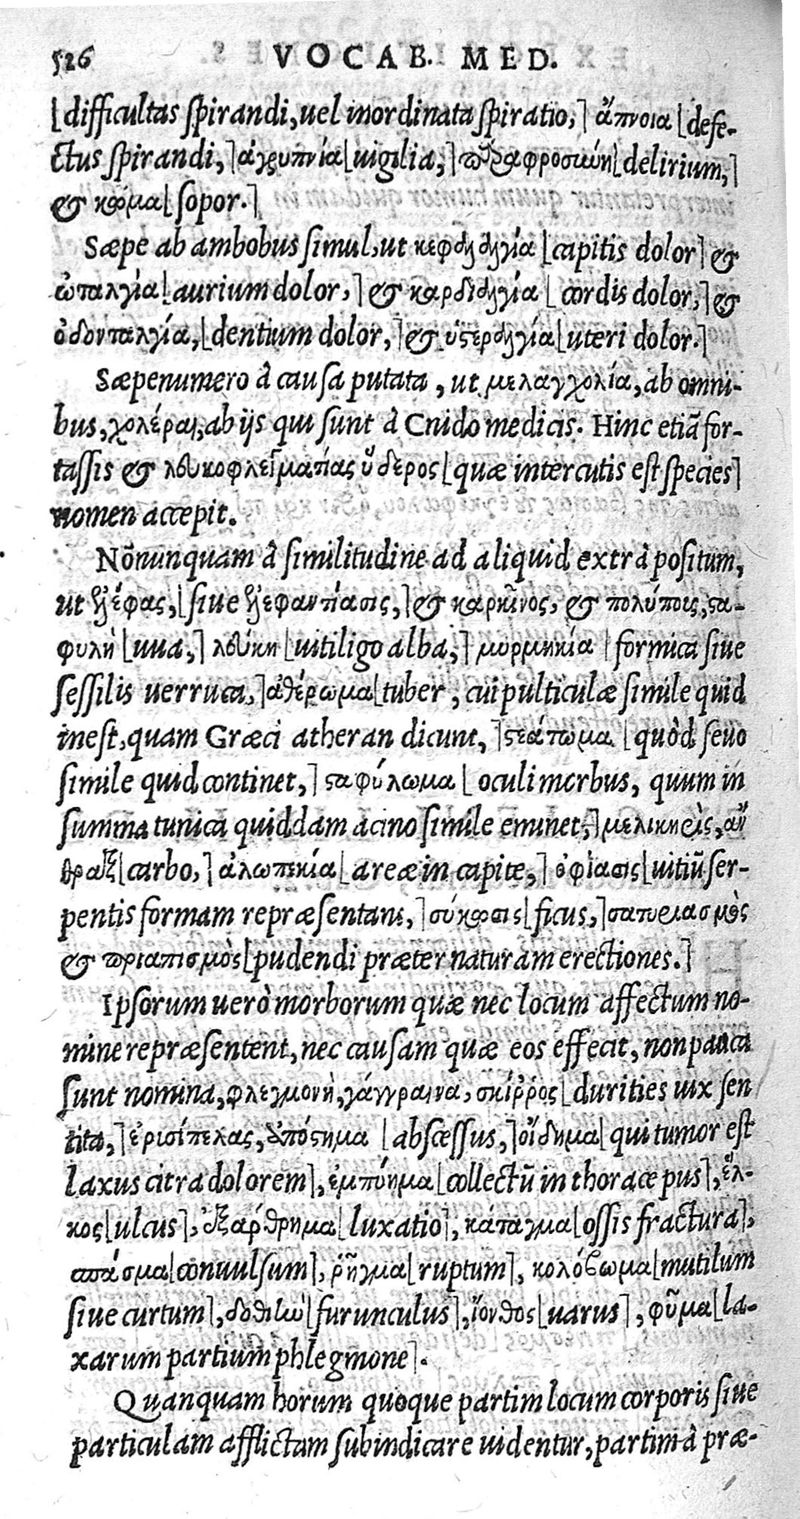 526 VOCAB. MED.
[difficultas spirandi, uel inordinata spiratio,] ἄπνοια [defe-
ctus spirandi,] ἀγρυπνία [uigilia,] παραφροσύνη [delirium,]
& κῶμα [sopor.]
Sæpe ab ambobus simul, ut κεφαλαλγία [capitis dolor] &
ὠταλγία [aurium dolor,] & καρδιαλγία [cordis dolor,] &
ὀδονταλγία, [dentium dolor,] & ὑστεραλγία [uteri dolor.]
Sæpenumero à causa putata, ut μελαγχολία, ab omni-
bus, χολέραι, ab ijs qui sunt à Cnido medicis. Hinc etiã for-
tassis & λευκοφλεγματίας ὕδερος [quæ intercutis est species]
nomen accepit.
Nõnunquam à similitudine ad aliquid extrà positum,
ut ἐλέφας, [siue ἐλεφαντίασις,] & καρκῖνος, & πολύπους, ϛα-
φυλὴ [uua,] λεύκη [uitiligo alba,] μυρμηκία [formica siue
sessilis uerruca,] ἀθέρωμα [tuber, cui pulticulæ simile quid
inest, quam Græci atheran dicunt,] ϛεάτωμα [quòd seuo
simile quid continet,] ϛαφύλωμα [oculi morbus, quum in
summa tunica quiddam acino simile eminet,] μελικηρὶς, ἄν
θραξ [carbo,] ἀλωπεκία [areæ in capite,] ὀφίασις [uitiũ ser-
pentis formam repræsentans,] σύκωσις [ficus,] σατυριασμὸς
& πριαπισμὸς [pudendi præter naturam erectiones.]
Ipsorum uerò morborum quæ nec locum affectum no-
mine repræsentent, nec causam quæ eos effecit, non pauca
sunt nomina, φλεγμονὴ, γάγγραινα, σκίῤῥος [durities uix sen
tita,] ἐρισίπελας, ἀπόϛημα [abscessus,] οἴδημα [qui tumor est
laxus citra dolorem], ἐμπύημα [collectũ in thorace pus], ἕλ-
κος [ulcus], ἐξάρθρημα [luxatio], κάταγμα [ossis fractura],
σπάσμα [conuulsum], ῥῆγμα [ruptum], κολόβωμα [mutilum
siue curtum], δοθιὼ [furunculus], ἴονθος [uarus], φῦμα [la-
xarum partium phlegmone].
Quanquam horum quoque partim locum corporis siue
particulam afflictam subindicare uidentur, partim à præ-